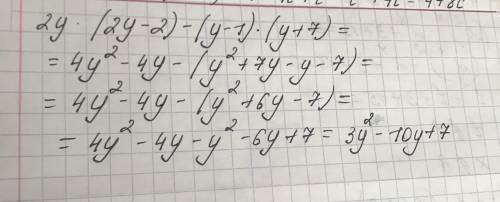 2y · (2y-2) - (y-1) · (y+7) =
= 4y² - 4y - (y² + 7y - y - 7) =
= 4y² - 4y - (y² + 6y - 7) =
= 4y² - 4y - y² - 6y + 7 = 3y² - 10y + 7